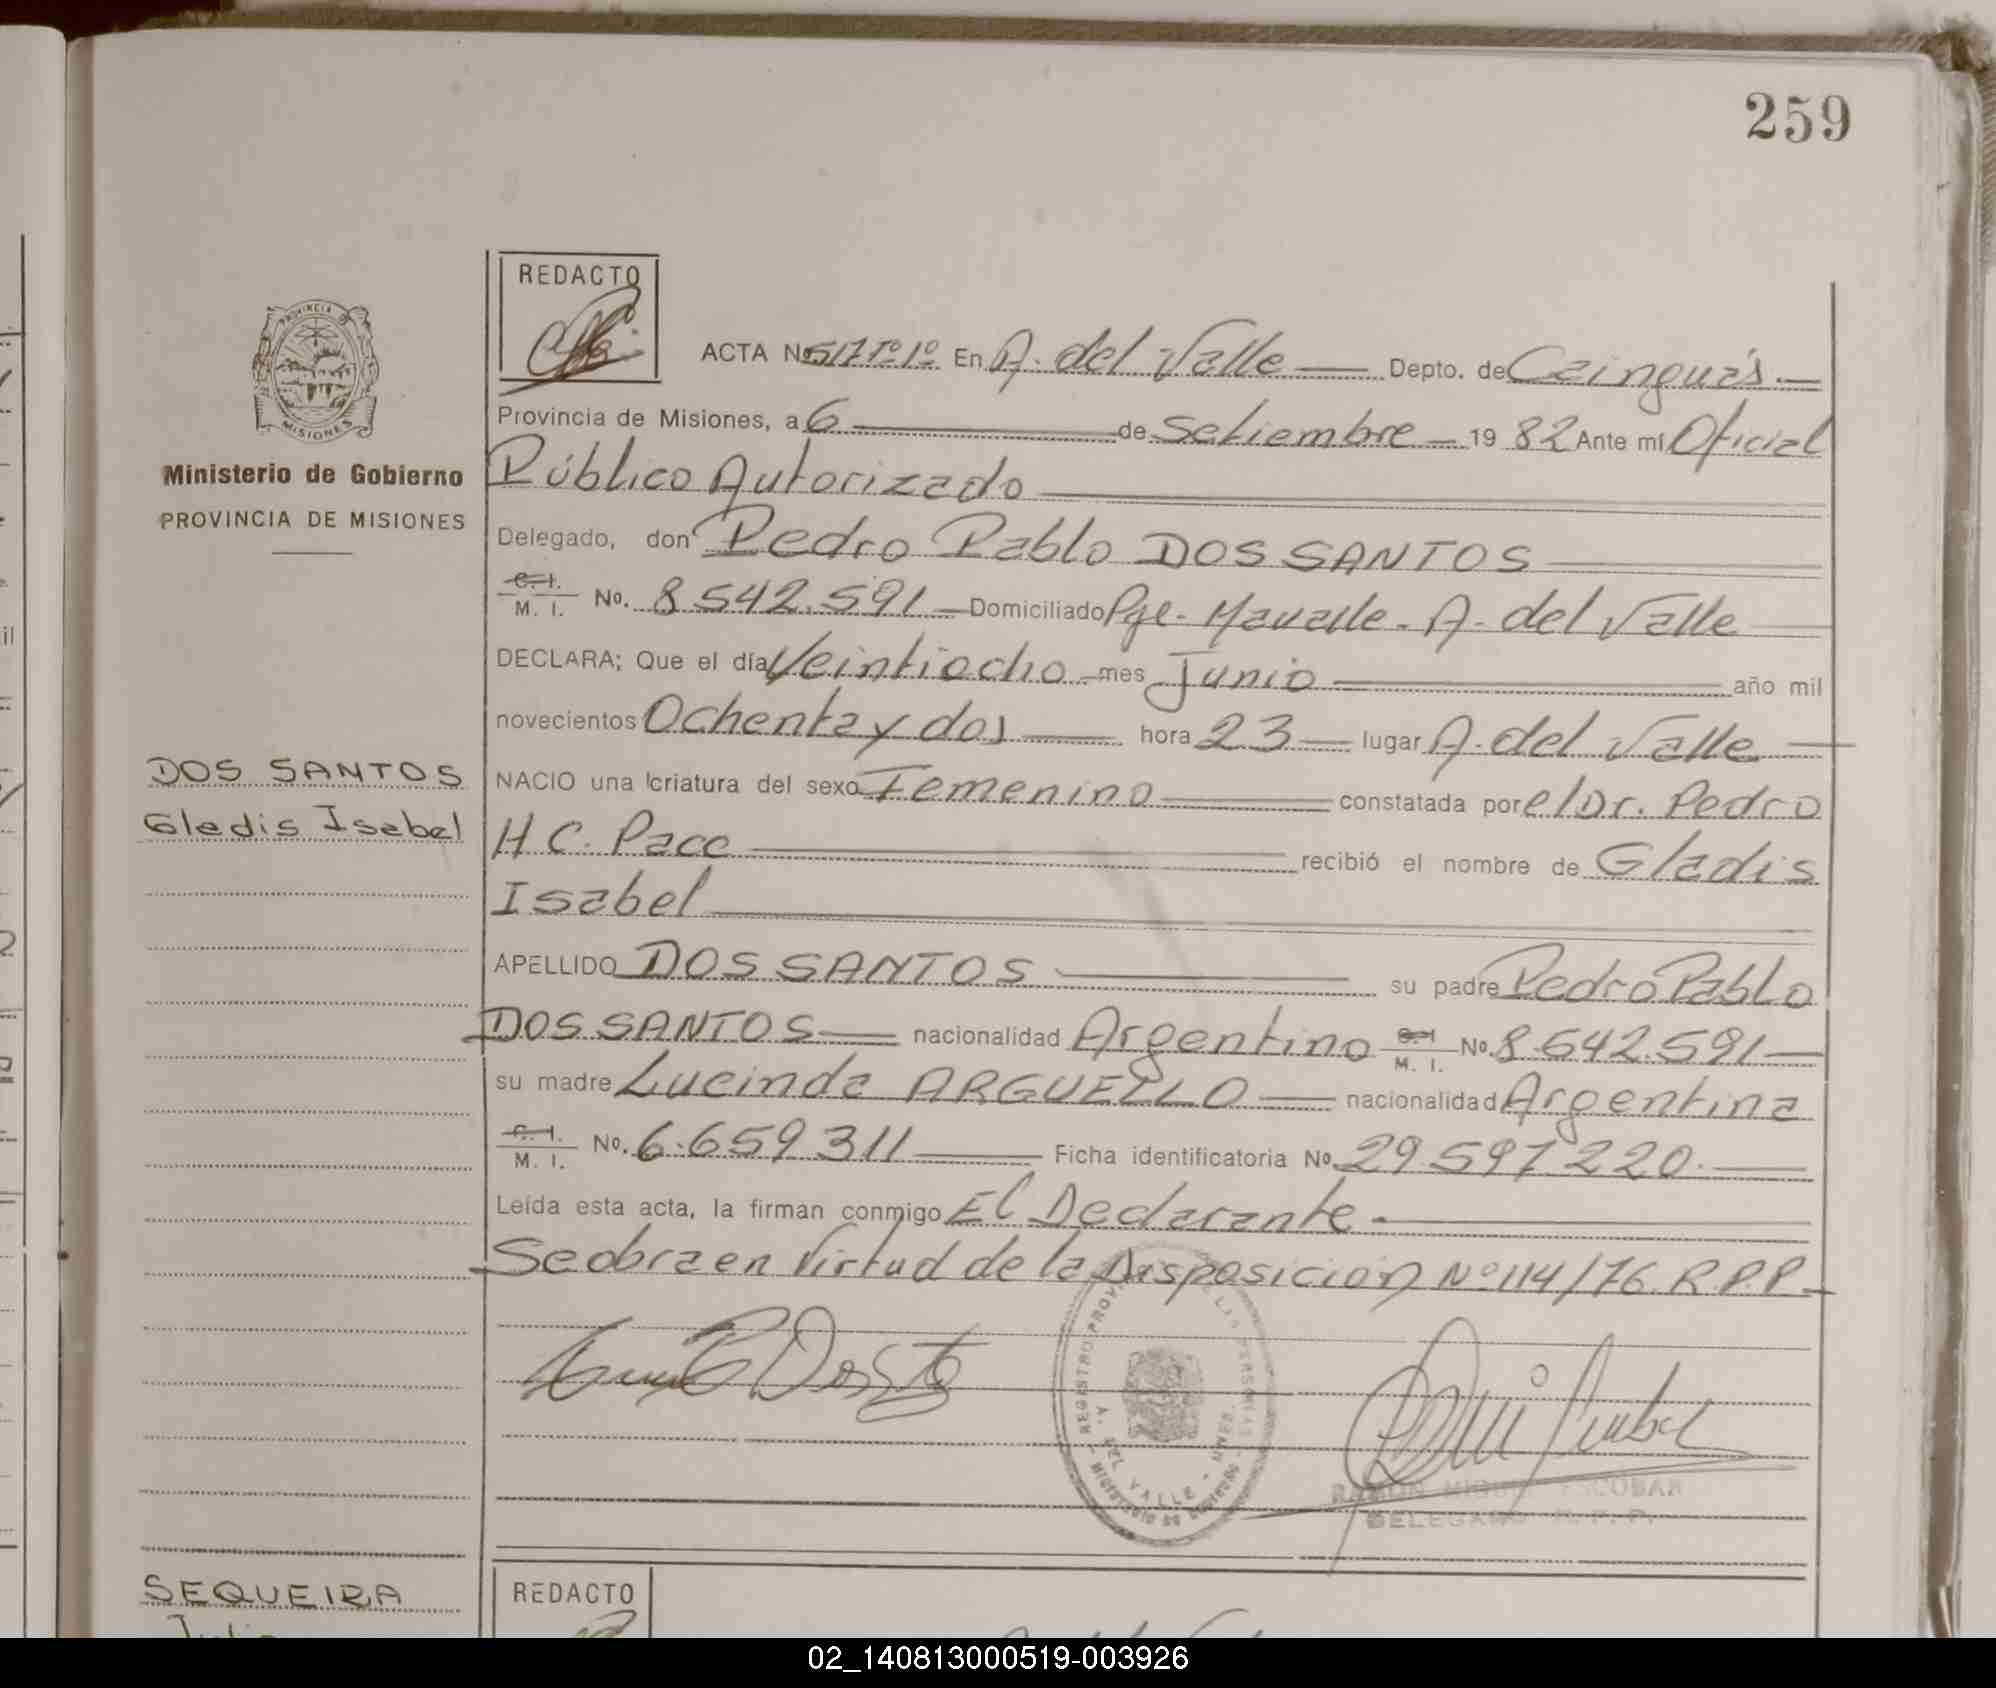 259
REDACTO
ACTA No. 517 Tº 1º En A. del Valle Depto. de Cainguás.
Provincia de Misiones, a 6 de Setiembre 19 82 Ante mí Oficial
Público Autorizado
Delegado, don Pedro Pablo DOS SANTOS
C. I.
M. I. No. 8 542.591 Domiciliado Pje. Mavalle - A. del Valle
DECLARA; Que el día Veintiocho mes Junio año mil
novecientos Ochenta y dos hora 23 lugar A. del Valle
NACIO una criatura del sexo Femenino constatada por el Dr. Pedro
H C. Pace recibió el nombre de Gladis
Isabel
APELLIDO DOS SANTOS su padre Pedro Pablo
DOS SANTOS nacionalidad Argentino C. I. M. I. No. 8.542.591
su madre Lucinda ARGUELLO nacionalidad Argentina
C. I.
M. I. No. 6.659 311 Ficha identificatoria No. 29 597 220.
Leída esta acta, la firman conmigo El Declarante.
Se obra en Virtud de la Disposición Nº 114/76 R.P.P.
PROVINCIA
MISIONES
Ministerio de Gobierno
PROVINCIA DE MISIONES
DOS SANTOS
Gladis Isabel
REGISTRO PROV. DE LAS PERSONAS
A. DEL VALLE - MNES.
MINISTERIO DE GOBIERNO
RAMON MIGUEL ESCOBAR
DELEGADO R. P. P.
SEQUEIRA
Julio
REDACTO
02_140813000519-003926